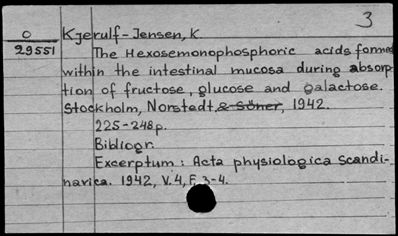 3
O
29551
Kjerulf-Jensen, K.
The Hexosemonophosphoric acids formed
within the intestinal mucosa during absorp-
tion of fructose, glucose and galactose.
Stockholm, Norstedt, & Söner, 1942.
225-248 p.
Bibliogr.
Excerptum: Acta physiologica Scandi-
navica. 1942, V.4, F. 3-4.